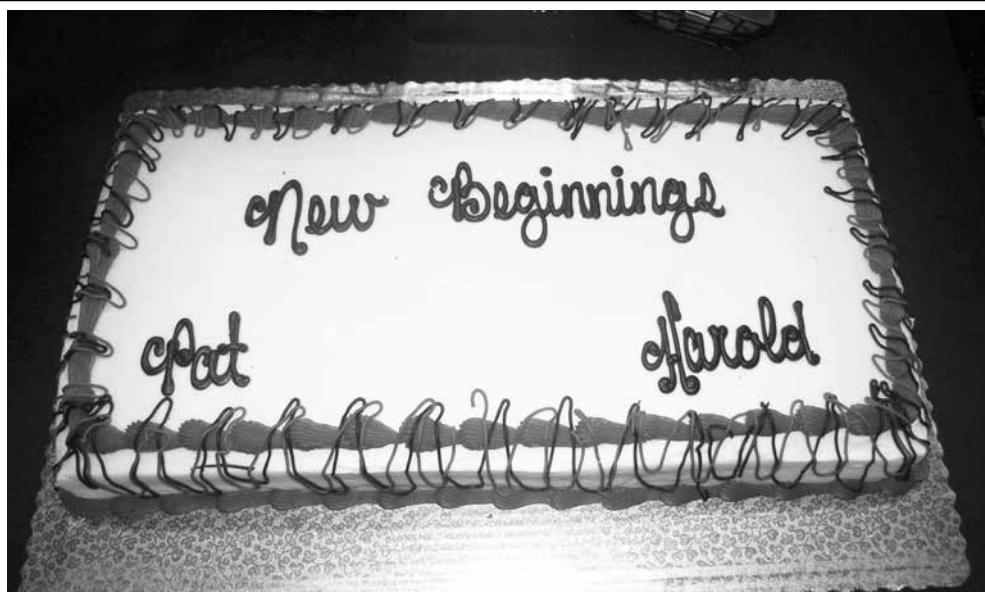 New Beginnings
Pat Harold